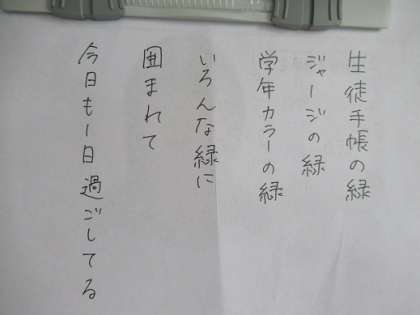 生徒手帳の緑
ジャージの緑
学年カラーの緑
いろんな緑に
囲まれて
今日も1日過ごしてる